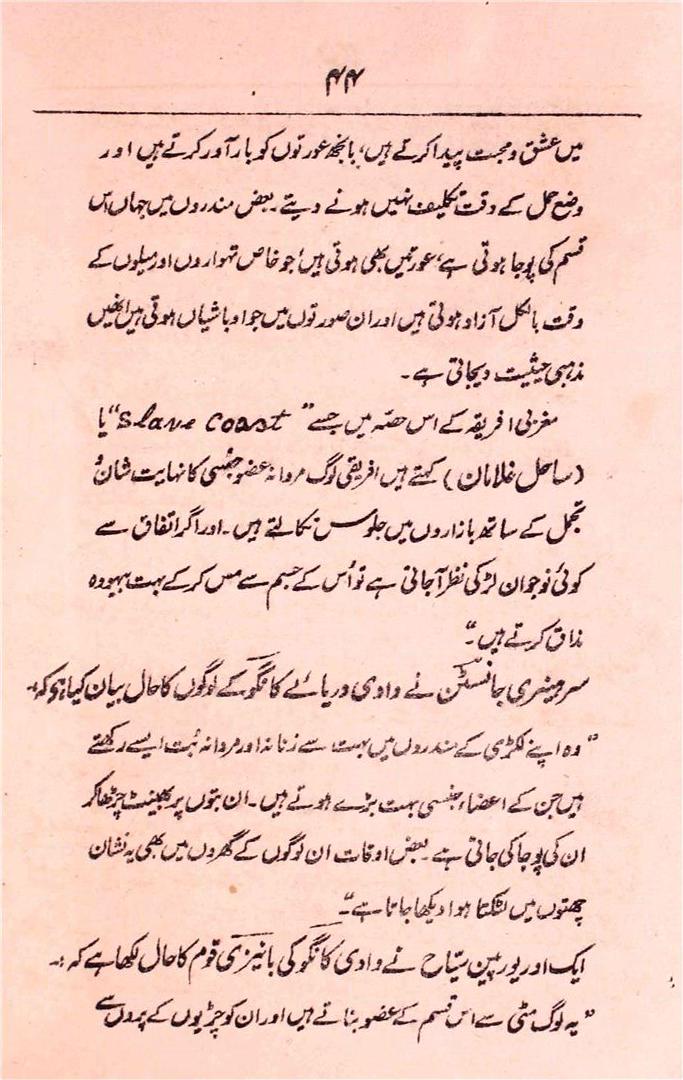 ۴۴
میں عشق و محبت پیدا کرتے ہیں، بانجھ عورتوں کو بار آور کرتے ہیں اور
وضع حمل کے وقت تکلیف نہیں ہونے دیتے۔ بعض مندروں میں جہاں اس
قسم کی پوجا ہوتی ہے، عورتیں بھی ہوتی ہیں، جو خاص تہواروں اور میلوں کے
وقت بالکل آزاد ہوتی ہیں اور ان صورتوں میں جو اوباشیاں ہوتی ہیں انھیں
مذہبی حیثیت دیجاتی ہے۔
مغربی افریقہ کے اس حصّہ میں جسے "Slave Coast" یا
(ساحل غلامان) کہتے ہیں افریقی لوگ مردانہ عضو جنسی کا نہایت شان و
تجمل کے ساتھ بازاروں میں جلوس نکالتے ہیں۔ اور اگر اتفاق سے
کوئی نوجوان لڑکی نظر آجاتی ہے تو اُس کے جسم سے مس کرکے بہت بیہودہ
مذاق کرتے ہیں۔"
سر ہینری جانسٹن نے وادی دریائے کانگو کے لوگوں کا حال بیان کیا ہے کہ:۔
"وہ اپنے لکڑی کے مندروں میں بہت سے زنانہ اور مردانہ بُت ایسے رکھتے
ہیں جن کے اعضاء جنسی بہت بڑے ہوتے ہیں۔ ان بتوں پر بھینٹ چڑھا کر
ان کی پوجا کی جاتی ہے۔ بعض اوقات ان لوگوں کے گھروں میں بھی یہ نشان
چھتوں میں لٹکتا ہوا دیکھا جاتا ہے۔"
ایک اور یورپین سیّاح نے وادی کانگو کی بانیزی قوم کا حال لکھا ہے کہ:۔
"یہ لوگ مٹی سے اس قسم کے عضو بناتے ہیں اور ان کو چڑیوں کے پروں سے